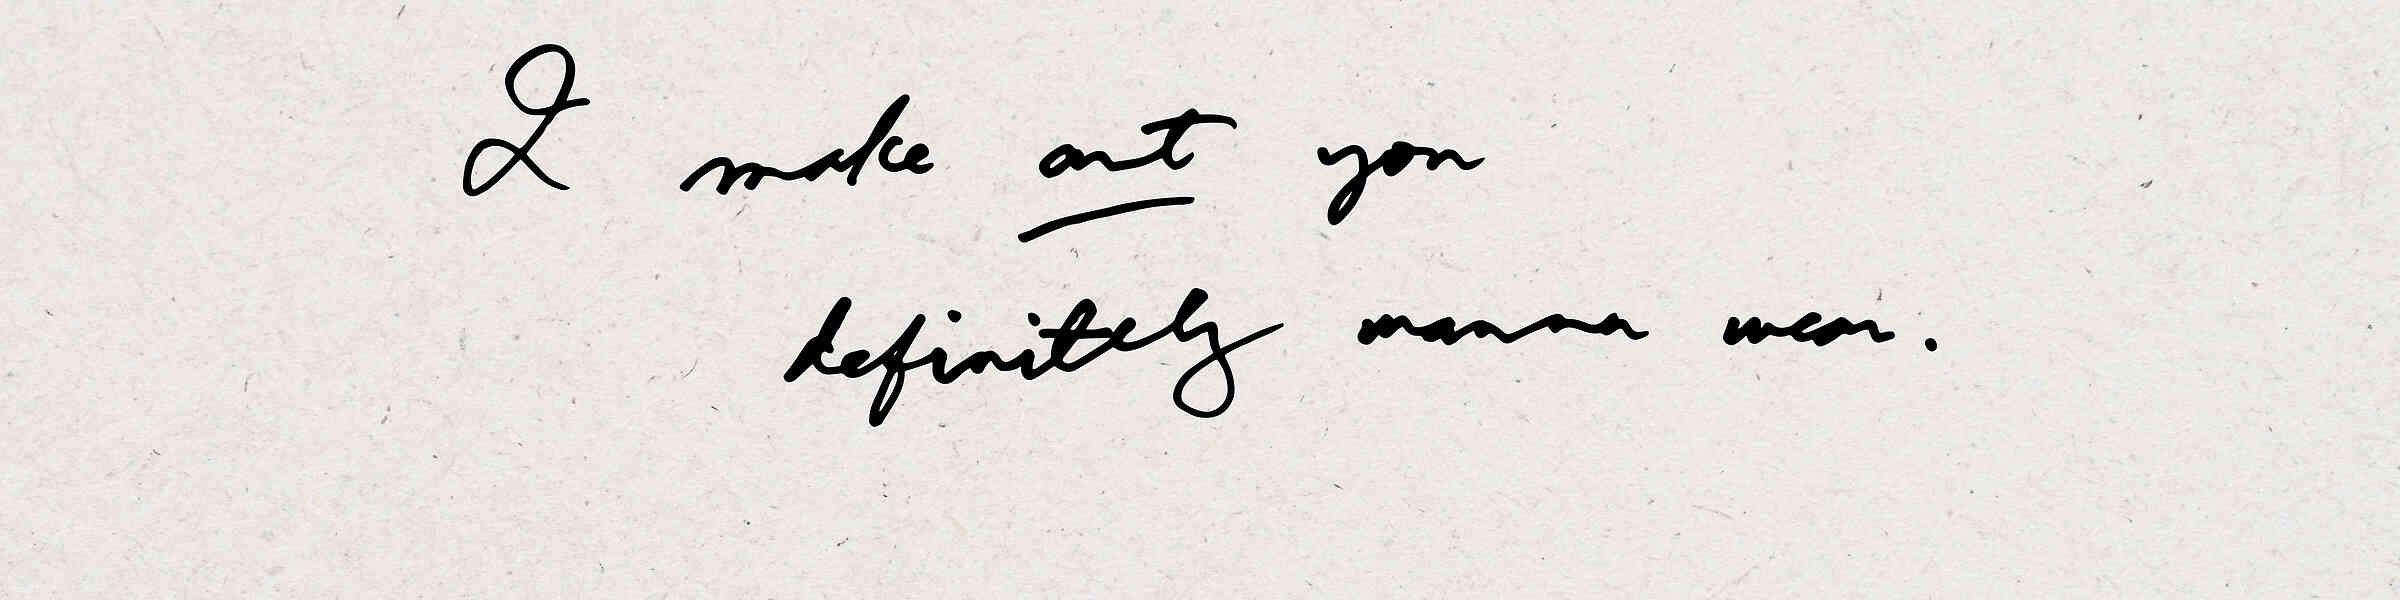 I make art you
definitely wanna wear.